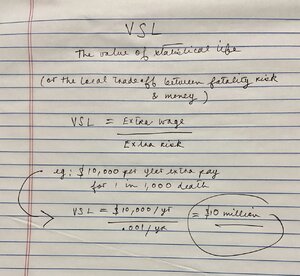 VSL
The value of statistical life
(or the local tradeoff between fatality risk
& money)
VSL = Extra wage
Extra risk
eg: $10,000 per year extra pay
for 1 in 1,000 death
VSL = $10,000/yr = $10 million
.001/yr